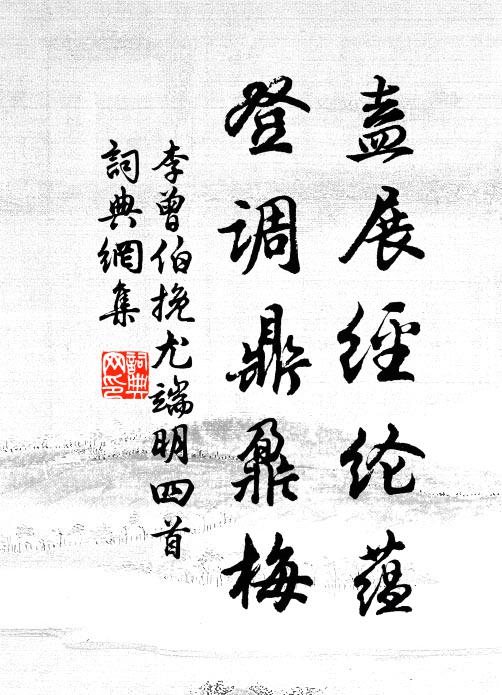 盍展經纶蕴
登调鼎鼐梅
李曾伯挽尤端明四首
詞典網集
詞典
网印